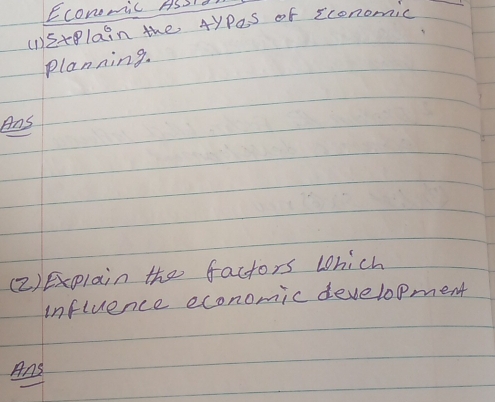 Economic
(1) Explain the types of Economic
Planning.
Ans
(2) Explain the factors which
influence economic development
Ans